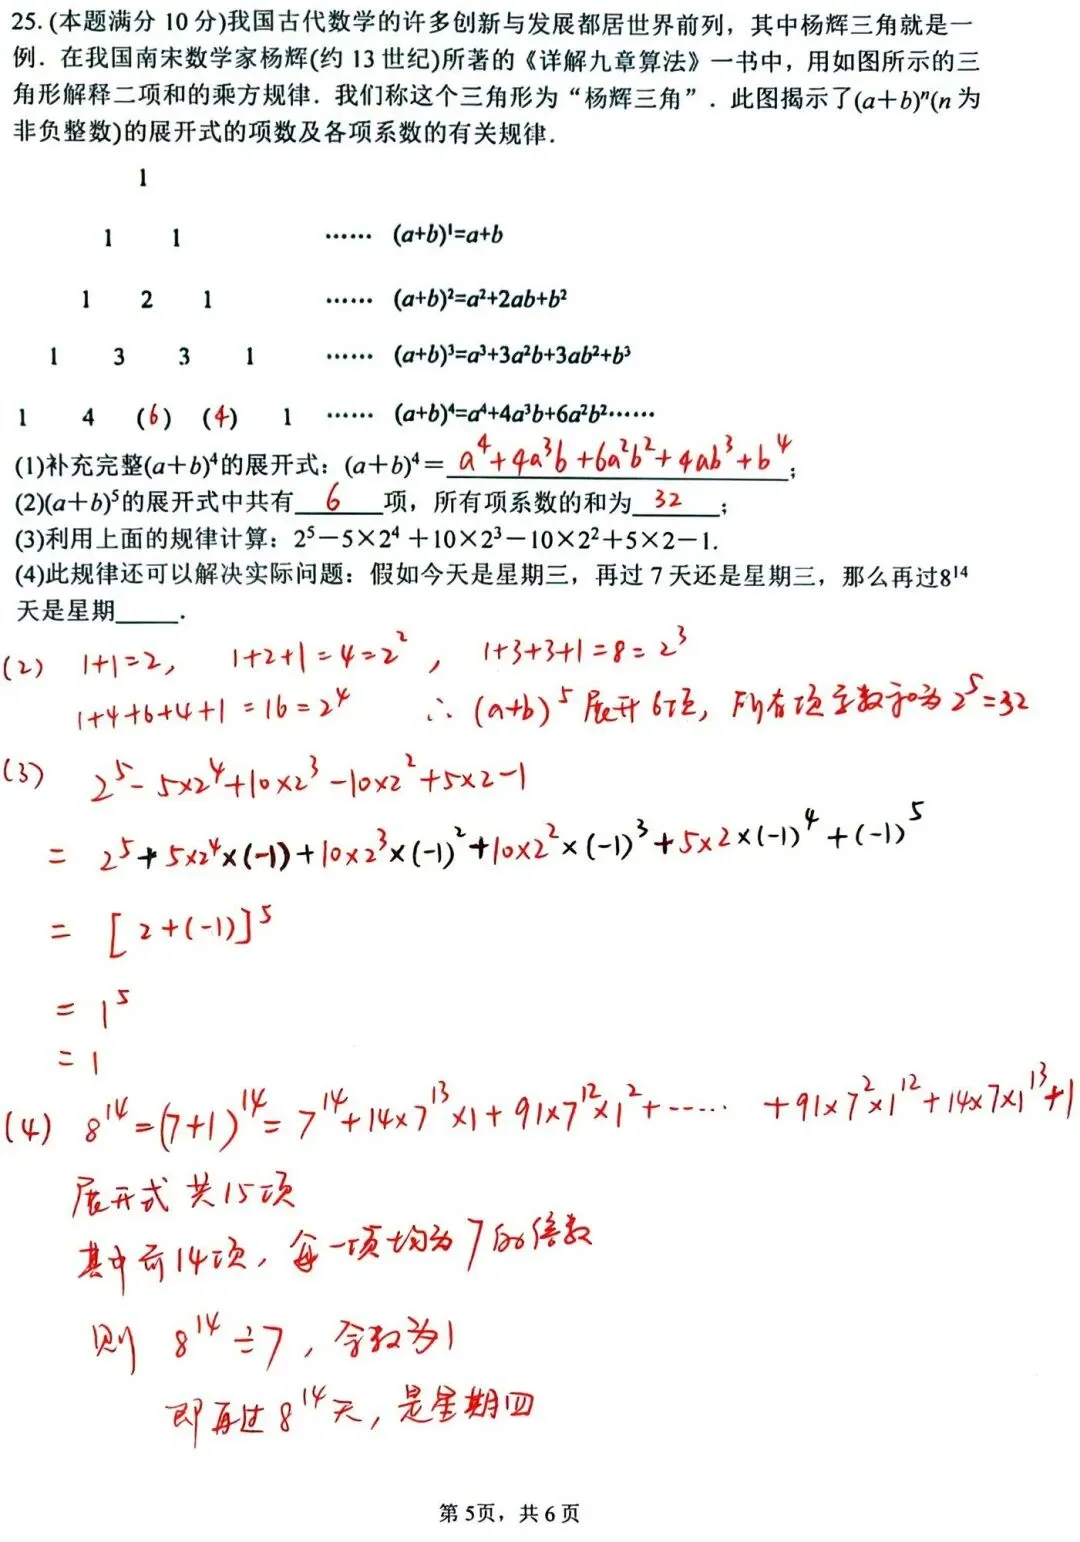 25. (本题满分 10 分)我国古代数学的许多创新与发展都居世界前列，其中杨辉三角就是一
例．在我国南宋数学家杨辉(约 13 世纪)所著的《详解九章算法》一书中，用如图所示的三
角形解释二项和的乘方规律．我们称这个三角形为“杨辉三角”．此图揭示了(a＋b)ⁿ(n 为
非负整数)的展开式的项数及各项系数的有关规律．
1
1 1 …… (a+b)¹=a+b
1 2 1 …… (a+b)²=a²+2ab+b²
1 3 3 1 …… (a+b)³=a³+3a²b+3ab²+b³
1 4 (6) (4) 1 …… (a+b)⁴=a⁴+4a³b+6a²b²……
(1)补充完整(a＋b)⁴的展开式：(a＋b)⁴＝ a⁴+4a³b+6a²b²+4ab³+b⁴ ；
(2)(a＋b)⁵的展开式中共有 6 项，所有项系数的和为 32 ；
(3)利用上面的规律计算：2⁵－5×2⁴＋10×2³－10×2²＋5×2－1.
(4)此规律还可以解决实际问题：假如今天是星期三，再过 7 天还是星期三，那么再过8¹⁴
天是星期_____．
(2) 1+1=2, 1+2+1=4=2², 1+3+3+1=8=2³
1+4+6+4+1=16=2⁴ ∴(a+b)⁵展开6项，所有项系数和为2⁵=32
(3) 2⁵-5×2⁴+10×2³-10×2²+5×2-1
= 2⁵+5×2⁴×(-1)+10×2³×(-1)²+10×2²×(-1)³+5×2×(-1)⁴+(-1)⁵
= [2+(-1)]⁵
= 1⁵
= 1
(4) 8¹⁴=(7+1)¹⁴=7¹⁴+14×7¹³×1+91×7¹²×1²+······+91×7²×1¹²+14×7×1¹³+1
展开式共15项
其中前14项，每一项均为7的倍数
则 8¹⁴÷7，余数为1
即再过8¹⁴天，是星期四
第 5页，共 6 页